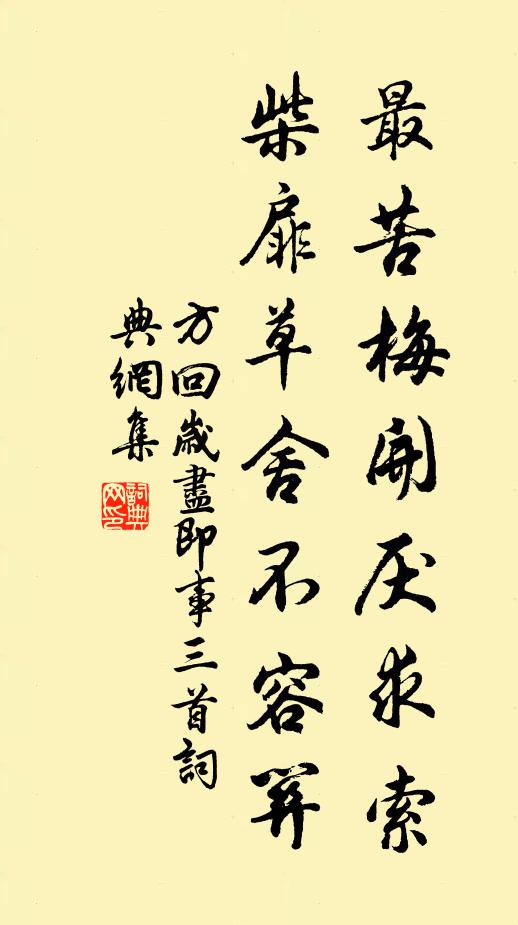 最苦梅開厌求索
柴扉草舍不容關
方回歲盡即事三首詞
典網集
詞典
网印